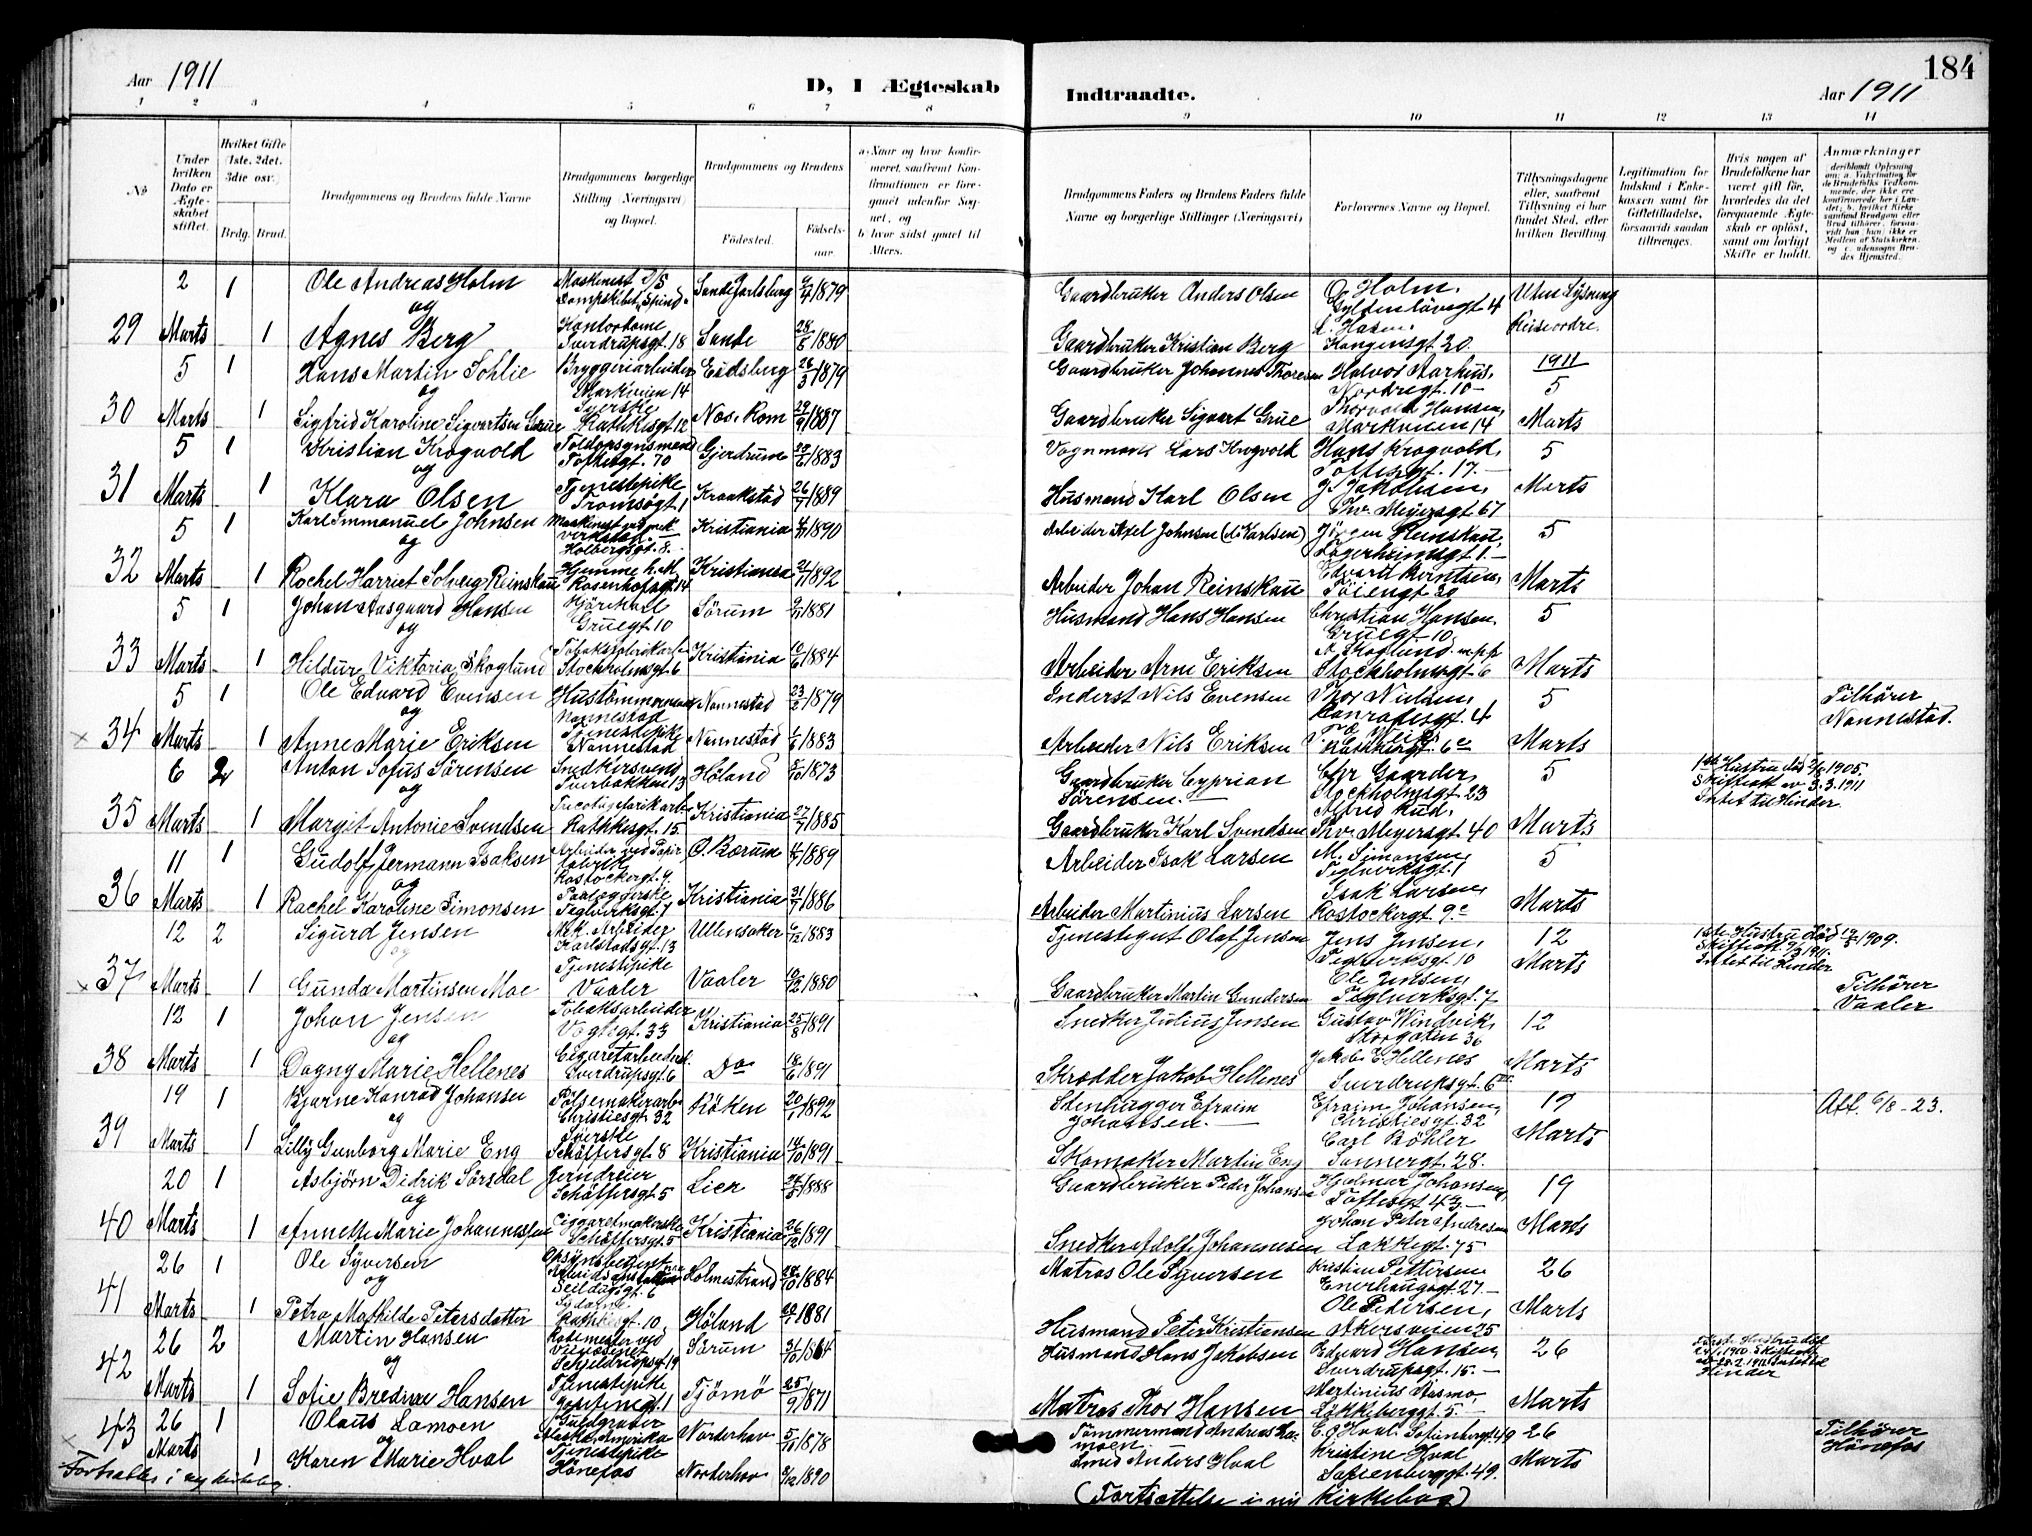 Aar 1911
D, I Ægteskab
Indtraadte.
Aar 1911
184
1 2 3 4 5 6 7 8
9 10 11 12 13 14
№
Under hvilken Dato er Ægteskabet stiftet.
Hvilket Gifte (1ste, 2det, 3die osv.)
Brdg. Brud.
Brudgommens og Brudens fulde Navne
Brudgommens borgerlige Stilling (Næringsvei) og Bopæl.
Brudgommens og Brudens
Fødested.
Fødselsaar
a) Naar og hvor konfirmeret, saafremt Konfirmationen er foregaaet udenfor Sognet, og
b) hvor sidst gaaet til Alters.
Brudgommens Faders og Brudens Faders fulde Navne og borgerlige Stillinger (Næringsvei)
Forlovernes Navne og Bopæl.
Tillysningsdagene eller, saafremt Tillysning ei har fundet Sted, efter hvilken Bevilling
Legitimation for Indskud i Enkekassen samt for Giftetilladelse, forsaavidt saadan tiltrænges.
Hvis nogen af Brudefolkene har været gift før, hvorledes da det foregaaende Ægteskab er opløst, samt om lovligt Skifte er holdt.
Anmærkninger
29 2 Marts 1 Ole Andreas Holm Maskinist D/S Dampskibet Spind Sande Jarlsberg 1879 Gaardbruker Anders Olsen O. Holm, Gyldenløvesgt 4 Uten Lysning
og
1 Agnes Berg Kontordame Sverdrupsgt. 18 Sande 1880 Gaardbruker Kristian Berg Kongensgt 20. Reiseordre.
30 5 Marts 1 Hans Martin Sohlie Bryggeriarbeider Markveien 14 Eidsberg 1879 Gaardbruker Johannes Thoresen Halvor Aarhus, Nordregt. 10 1911 5
og
1 Sigfrid Karoline Sigvartsen Grue Syerske Rathkesgt 12 Næs. Rom. 1887 Gaardbruker Sigvart Grue Thorvald Hansen, Markveien 14 Marts
31 5 Marts 1 Kristian Krogvold Toldopsynsmand Toftesgt. 70 Gjerdrum 1883 Vognmand Lars Krogvold Hans Krogvold, Toftesgt. 17. 5
og
1 Klara Olsen Tjenestepike Tromsøgt. 1 Kraakstad 1889 Husmand Karl Olsen J. Jakobsen, Thv. Meyersgt. 67 Marts
32 5 Marts 1 Karl Immanuel Johnsen Maskinist ved mek verksted. Holbergsgt. 8. Kristiania 1890 Arbeider Axel Johnsen (d. Karlsen) Jörgen Reinskau, 5
og
1 Rachel Harriet Solveig Reinskau Hjemme h. M. Rosenhofgt 14 Kristiania 1892 Arbeider Johan Reinskau Edvard Berntsen, Töiengt 20 Marts
33 5 Marts 1 Johan Aasgaard Hansen Kjørekarl Gruegt 10 Sörum 1881 Husmand Hans Hansen Christian Hansen, Gruegt 10 5
og
1 Hildur Viktoria Skoglund Stockholmsgt. 6 Kristiania 1884 Arbeider Arne Eriksen A. Skoglund m.p.p. Stockholmsgt. 6 Marts
× 34 5 Marts 1 Ole Edvard Evensen Hustömmermand Nannestad Nannestad 1879 Inderst Nils Evensen Thor Nielsen, Konradisgt. 4 5 Tilhörer Nannestad.
og
1 Anne Marie Eriksen Tjenestepike Nannestad Nannestad 1883 Arbeider Nils Eriksen Marts
35 6 Marts 2 Anton Sofus Sörensen Snedkersvend Tverbakken 13 Höland 1873 Gaardbruker Cyprian Sörensen. Chr Gaarder, Stockholmsgt. 23 5 1ste Hustru död 1905. Skifteatt. av 3.3.1911 Intet til Hinder.
og
1 Margit Antonie Svendsen Tricotagefabrikarb. Rathkesgt. 15 Kristiania 1885 Gaardbruker Karl Svendsen Alfrid Rud, Thv. Meyersgt. 40 Marts
36 11 Marts 1 Gudolf Hermann Isaksen Arbeider ved Papir fabrik Rostockergt. 9. Ö. Bærum 1889 Arbeider Isak Larsen M. Simonsen, Teglverksgt. 1 5
og
1 Rachel Karoline Simonsen Teglverksgt. 1 Kristiania 1886 Arbeider Martinius Larsen Isak Larsen, Rostockergt. 9c Marts
× 37 12 Marts 2 Sigurd Jensen Mek. Arbeider Karlstadsgt. 13 Ullensaker 1883 Tjenestegut Olaf Jensen Jens Jensen, Teglverksgt. 10 12 1ste Hustru död 1909. Skifteatt. 1911. Intet til Hinder
og
1 Gunda Martinsen Moe Tjenestepike Vaaler Vaaler 1880 Gaardbruker Martin Gundersen Ole Jensen, Teglverksgt. 7 Marts Tilhörer Vaaler
38 12 Marts 1 Johan Jensen Tobaksarbeider Vogtsgt. 33 Kristiania 1891 Snedker Julius Jensen Gustav Windvik, Storgaten 36 12
og
1 Dagny Marie Hellenes Cigaretarbeidersk. Sverdrupsgt. 6 Do 1891 Skrædder Jakob Hellenes Jakob E. Hellenes Sverdrupsgt. 6 Marts
39 19 Marts 1 Bjarne Konrad Johansen Pölsemakerarb. Christiesgt. 32 Röken 1892 Stenhugger Efraim Johansen. Efraim Johansen, Christiesgt. 32 19 Att. 6/8-23.
og
1 Lilly Gunborg Marie Eng Syerske Schöffersgt. 8 Kristiania 1891 Skomaker Martin Eng Carl Böhler Sannergt. 28. Marts
40 20 Marts 1 Asbjørn Didrik Sörsdal Jerndreier Schöffersgt. 5 Lier 1888 Gaardbruker Peder Johansen Hjalmar Johansen, Toftesgt. 43 19
og
1 Annette Marie Johannessen Ciggaretmakerske Schöffersgt. 5 Kristiania 1891 Snedker Adolf Johannesen Johan Peter Andresen Lakkegt. 75 Marts
41 26 Marts 1 Ole Syversen Opsynsbetjent Seilduksgt. 6 Holmestrand 1884 Matros Ole Syversen Kristian Pettersen Enerhaugsgt. 27 26
og
1 Petra Mathilde Petersdatter Rathkesgt. 10 Höland 1881 Husmand Peter Kristiansen Ole Pedersen, Akersveien 25 Marts
42 26 Marts 2 Martin Hansen Schjeldrupsgt 19 Sörum 1864 Husmand Hans Jakobsen Edvard Hansen, Sverdrupsgt. 15. 26 Første Hustru död 1910. Skifteatt. av 28.2.1911 Intet til Hinder
og
1 Sofie Bredine Hansen Tjenestepike Josefinegt. 1 Tjömö 1871 Matros Thor Hansen Lökkeberggt. 5. Marts
× 43 26 Marts 1 Olaus Lamoen Guldgraver Alaska Amerika Norderhov 1878 Tømmermand Andreas Lamoen E. G. Hval. Sofienberggt 49 26 Tilhörer Hönefos
og
1 Karen Marie Hval Tjenestepike Hönefos Norderhov 1890 Smed Anders Hval Kristine Hval Sofienberggt. 49. Marts
Fortsættes i ny kirkebog.
(Fortsættelse i ny kirkebog)